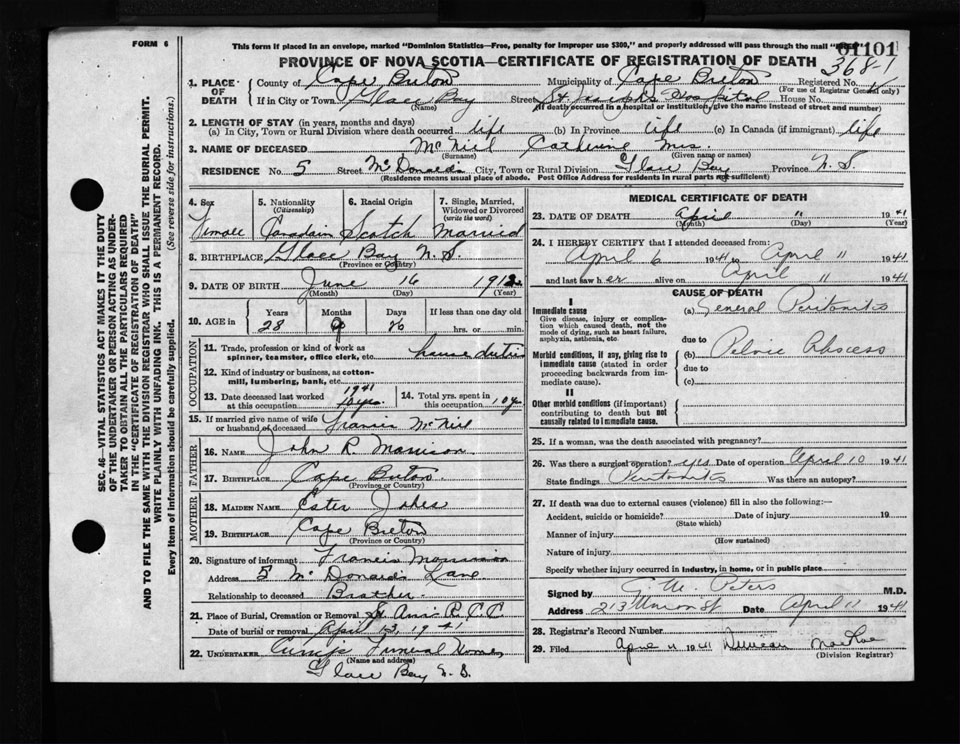 FORM 6
This form if placed in an envelope, marked "Dominion Statistics—Free, penalty for improper use $300," and properly addressed will pass through the mail
01101
PROVINCE OF NOVA SCOTIA—CERTIFICATE OF REGISTRATION OF DEATH
368-1
1. PLACE OF DEATH
County of Cape Breton Municipality of Cape Breton Registered No.
(For use of Registrar General only)
If in City or Town Glace Bay Street St. Joseph's Hospital House No.
(Name) (If death occurred in a hospital or institution, give the name instead of street and number)
2. LENGTH OF STAY (in years, months and days)
(a) In City, Town or Rural Division where death occurred life (b) In Province life (c) In Canada (if immigrant) life
3. NAME OF DECEASED McNeil Catherine Mrs.
(Surname) (Given name or names)
RESIDENCE No. 5 Street McDonald's City, Town or Rural Division Glace Bay Province N. S
(Residence means usual place of abode. Post Office Address for residents in rural parts not sufficient)
4. Sex 5. Nationality (Citizenship) 6. Racial Origin 7. Single, Married, Widowed or Divorced (write the word)
Female Canadain Scotch Married
8. BIRTHPLACE Glace Bay N. S.
(Province or Country)
9. DATE OF BIRTH June 16 1912
(Month) (Day) (Year)
10. AGE in Years Months Days If less than one day old
28 9 26 hrs. or min.
OCCUPATION
11. Trade, profession or kind of work as spinner, teamster, office clerk, etc. house duties
12. Kind of industry or business, as cotton-mill, lumbering, bank, etc.
13. Date deceased last worked at this occupation 1941
14. Total yrs. spent in this occupation 10 y
15. If married give name of wife or husband of deceased Francis McNeil
FATHER
16. NAME John R. Morrison
17. BIRTHPLACE Cape Breton
(Province or Country)
MOTHER
18. MAIDEN NAME Ester
19. BIRTHPLACE Cape Breton
(Province or Country)
20. Signature of informant Francis Morrison
Address 5 McDonald's Lane
Relationship to deceased Brother
21. Place of Burial, Cremation or Removal St. Anns R.C.C
Date of burial or removal April 13, 1941
22. UNDERTAKER Funeral Home,
(Name and address)
Glace Bay N. S.
MEDICAL CERTIFICATE OF DEATH
23. DATE OF DEATH April 11 1941
(Month) (Day) (Year)
24. I HEREBY CERTIFY that I attended deceased from:
April 6 1941 to April 11 1941
and last saw her alive on April 11 1941
CAUSE OF DEATH
I
Immediate cause
Give disease, injury or complication which caused death, not the mode of dying, such as heart failure, asphyxia, asthenia, etc.
(a) General Peritonitis
due to
Morbid conditions, if any, giving rise to immediate cause (stated in order proceeding backwards from immediate cause).
(b) Pelvic Abscess
due to
(c)
II
Other morbid conditions (if important) contributing to death but not causally related to immediate cause.
25. If a woman, was the death associated with pregnancy?
26. Was there a surgical operation? yes Date of operation April 10 1941
State findings Peritonitis Was there an autopsy?
27. If death was due to external causes (violence) fill in also the following:—
Accident, suicide or homicide? Date of injury 19
(State which)
Manner of injury
(How sustained)
Nature of injury
Specify whether injury occurred in industry, in home, or in public place
Signed by Peters M.D.
Address 213 Union St Date April 11 1941
28. Registrar's Record Number
29. Filed April 11 1941 Duncan MacRae
(Division Registrar)
SEC. 46—VITAL STATISTICS ACT MAKES IT THE DUTY
OF THE UNDERTAKER OR PERSON ACTING AS UNDER-
TAKER TO OBTAIN ALL THE PARTICULARS REQUIRED
IN THE "CERTIFICATE OF REGISTRATION OF DEATH"
AND TO FILE THE SAME WITH THE DIVISION REGISTRAR WHO SHALL ISSUE THE BURIAL PERMIT.
WRITE PLAINLY WITH UNFADING INK. THIS IS A PERMANENT RECORD.
Every item of information should be carefully supplied. (See reverse side for instructions.)